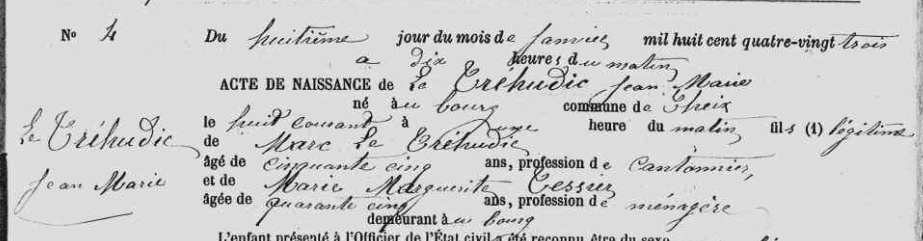 N° 4 Du huitième jour du mois de janvier mil huit cent quatre-vingt trois
a dix heures du matin
ACTE DE NAISSANCE de Le Tréhudic Jean Marie
né au bourg commune de Theix
le huit courant à une heure du matin, fils (1) légitime
Le Tréhudic
Jean Marie
de Marc Le Tréhudic
âgé de cinquante cinq ans, profession de cantonnier,
et de Marie Marguerite Tessier
âgée de quarante cinq ans, profession de ménagère
demeurant au bourg
L'enfant présenté à l'Officier de l'État civil a été reconnu être du sexe